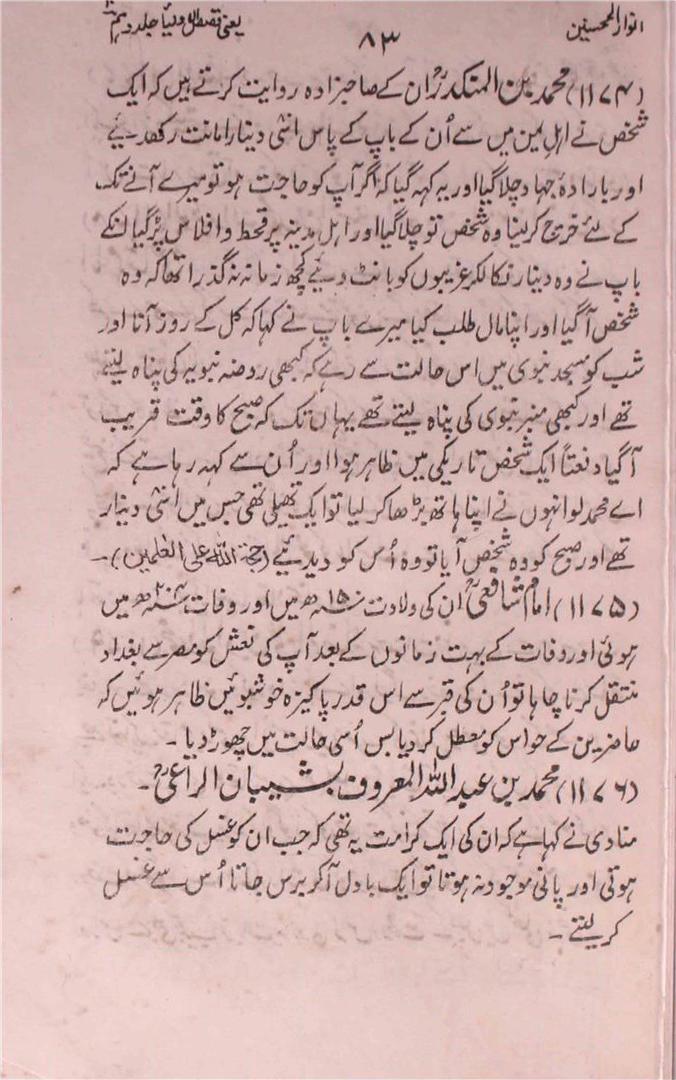 انوار المحسنین
۸۳
یعنی قصص الاولیا جلد دہم
(۱۱۷۴) محمد بن المنکدرؒ ان کے صاحبزادہ روایت کرتے ہیں کہ ایک
شخص نے اہلِ یمن میں سے اُن کے باپ کے پاس اسّی دینار امانت رکھدیئے
اور بارادۂ جہاد چلا گیا اور یہ کہہ گیا کہ اگر آپ کو حاجت ہو تو میرے آنے تک
کے لئے خرچ کر لینا وہ شخص تو چلا گیا اور اہل مدینہ پر قحط و افلاس پڑ گیا انکے
باپ نے وہ دینار نکالکر غریبوں کو بانٹ دیئے کچھ زمانہ نہ گذرا تھا کہ وہ
شخص آ گیا اور اپنا مال طلب کیا میرے باپ نے کہا کہ کل کے روز آنا اور
شب کو مسجد نبوی میں اس حالت سے رہے کہ کبھی روضہ نبویہ کی پناہ لیتے
تھے اور کبھی منبر نبوی کی پناہ لیتے تھے یہاں تک کہ صبح کا وقت قریب
آ گیا دفعتاً ایک شخص تاریکی میں ظاہر ہوا اور اُن سے کہہ رہا ہے کہ
اے محمد لو انہوں نے اپنا ہاتھ بڑھا کر لیا تو ایک تھیلی تھی جس میں اسّی دینار
تھے اور صبح کو وہ شخص آیا تو وہ اُس کو دیدیئے (حجۃ اللہ علی العٰلمین)۔
(۱۱۷۵) امام شافعیؒ ان کی ولادت ۱۵۰ھ میں اور وفات ۲۰۴ھ میں
ہوئی اور وفات کے بہت زمانوں کے بعد آپ کی نعش کو مصر سے بغداد
منتقل کرنا چاہا تو اُن کی قبر سے اس قدر پاکیزہ خوشبوئیں ظاہر ہوئیں کہ
حاضرین کے حواس کو معطل کر دیا بس اُسی حالت میں چھوڑ دیا۔
(۱۱۷۶) محمد بن عبداللہ المعروف بشیبان الراعیؒ۔
منادی نے کہا ہے کہ ان کی ایک کرامت یہ تھی کہ جب ان کو غسل کی حاجت
ہوتی اور پانی موجود نہ ہوتا تو ایک بادل آ کر برس جاتا اُس سے غسل
کر لیتے۔